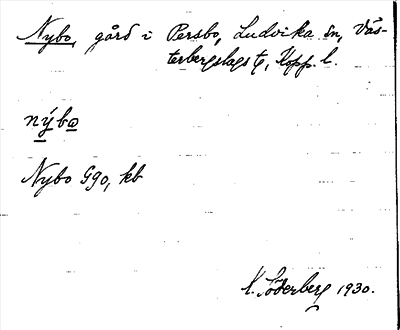 Nybo, gård i Persbo, Ludvika sn, Väs-
terbergslags tg, Kopp. l.
nýbo
Nybo Ggo, kb
K. Söderberg 1930.